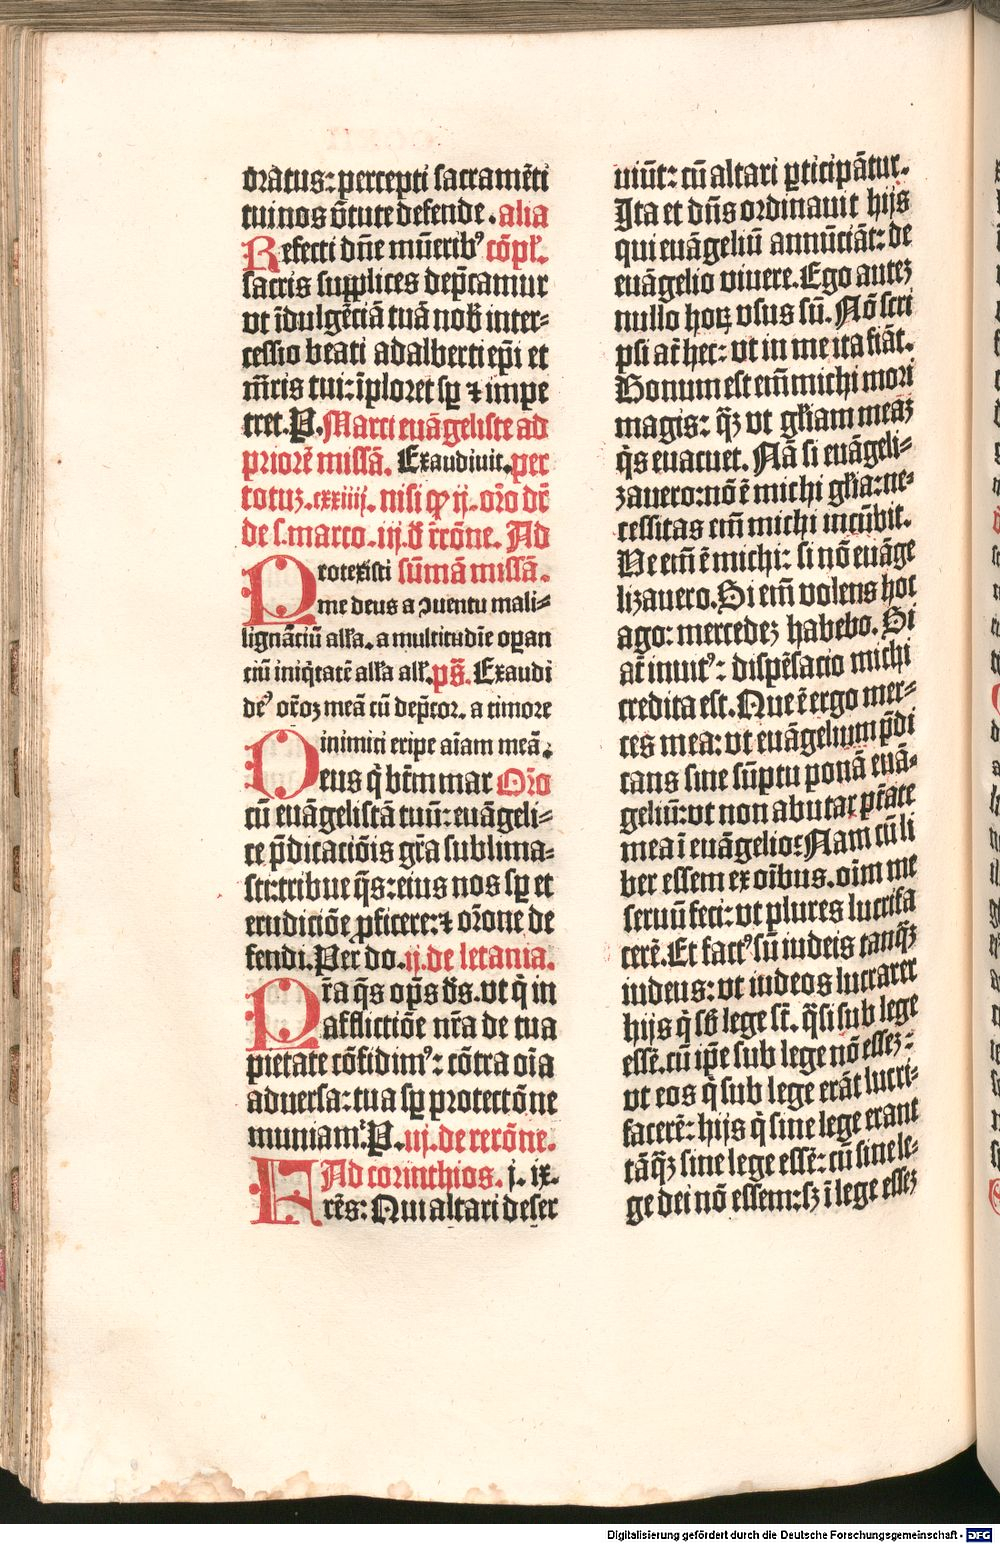 oratus: percepti sacramēti
tui nos v̄tute defende. alia
Refecti dn̄e mūerib⁹ cōpl̄.
sacris supplices dep̄camur
vt īdulgēciā tuā nob̄ inter-
cessio beati adalberti ep̄i et
mr̄is tui: īploret sp ⁊ impe
tret. P. Marci euāgeliste ad
priorē missā. Exaudiuit. per
totuȝ. cxxiiij. nisi ꝙ ij. or̄o dr̄
de s. marco. iij. d̄ r̄rōne. Ad
Protexisti sūmā missā.
me deus a ꝯuentu mali-
lignāciū all̄a. a multitudīe oꝑan
ciū iniq̇tatē all̄a all̄. ps̄. Exaudi
de⁹ or̄oȝ meā cū dep̄cor. a timore
inimici eripe aīam meā.
Deus q̇ bt̄m mar Or̄o
cū euāgelistā tuū: euāgeli-
ce p̄dicatiōis gr̄a sublima-
sti: tribue q̄s: eius nos sp et
erudiciōe ꝓficere: ⁊ or̄one de
fendi. Per do. ij. de letania.
Pr̄a q̄s op̄s ds̄. vt q̇ in
afflictiōe nr̄a de tua
pietate cōfidim⁹: cōtra oīa
aduersa: tua sp protectōne
muniam͛. P. iij. de rerōne.
Ad corinthios. j. ix.
Frēs: Qui altari deser
uiūt: cū altari ꝑticipātur.
Ita et dn̄s ordinauit hijs
qui euāgeliū annūciāt: de
euāgelio viuere. Ego auteȝ
nullo hoꝝ vsus sū. Nō scri
psi at̄ hec: vt in me ita fiāt.
Bonum est em̄ michi mori
magis: q̄ȝ vt gl̄iam meaȝ
q̄s euacuet. Nā si euāgeli-
zauero: nō ē michi gl̄ia: ne-
cessitas em̄ michi incūbit.
Ve em̄ ē michi: si nō euāge
lizauero. Si em̄ volens hoc
ago: mercedeȝ habebo. Si
at̄ inuit⁹: dispēsacio michi
credita est. Que ē ergo mer-
ces mea: vt euāgelium p̄di
cans sine sūptu ponā euā-
geliū: vt non abutar pt̄ate
mea ī euāgelio: Nam cū li
ber essem ex oībus. oīm me
seruū feci: vt plures lucrifa
cerē. Et fact⁹ sū iudeis tanq̄ȝ
iudeus: vt iudeos lucrarer
hijs q̇ sb̄ lege st̄. q̄si sub lege
essē. cū ip̄e sub lege nō esseȝ:
vt eos q̇ sub lege erāt lucri-
facerē: hijs q̇ sine lege erant
tāq̄ȝ sine lege essē: cū sine le-
ge dei nō essem: sȝ ī lege esseȝ
Digitalisierung gefördert durch die Deutsche Forschungsgemeinschaft - DFG